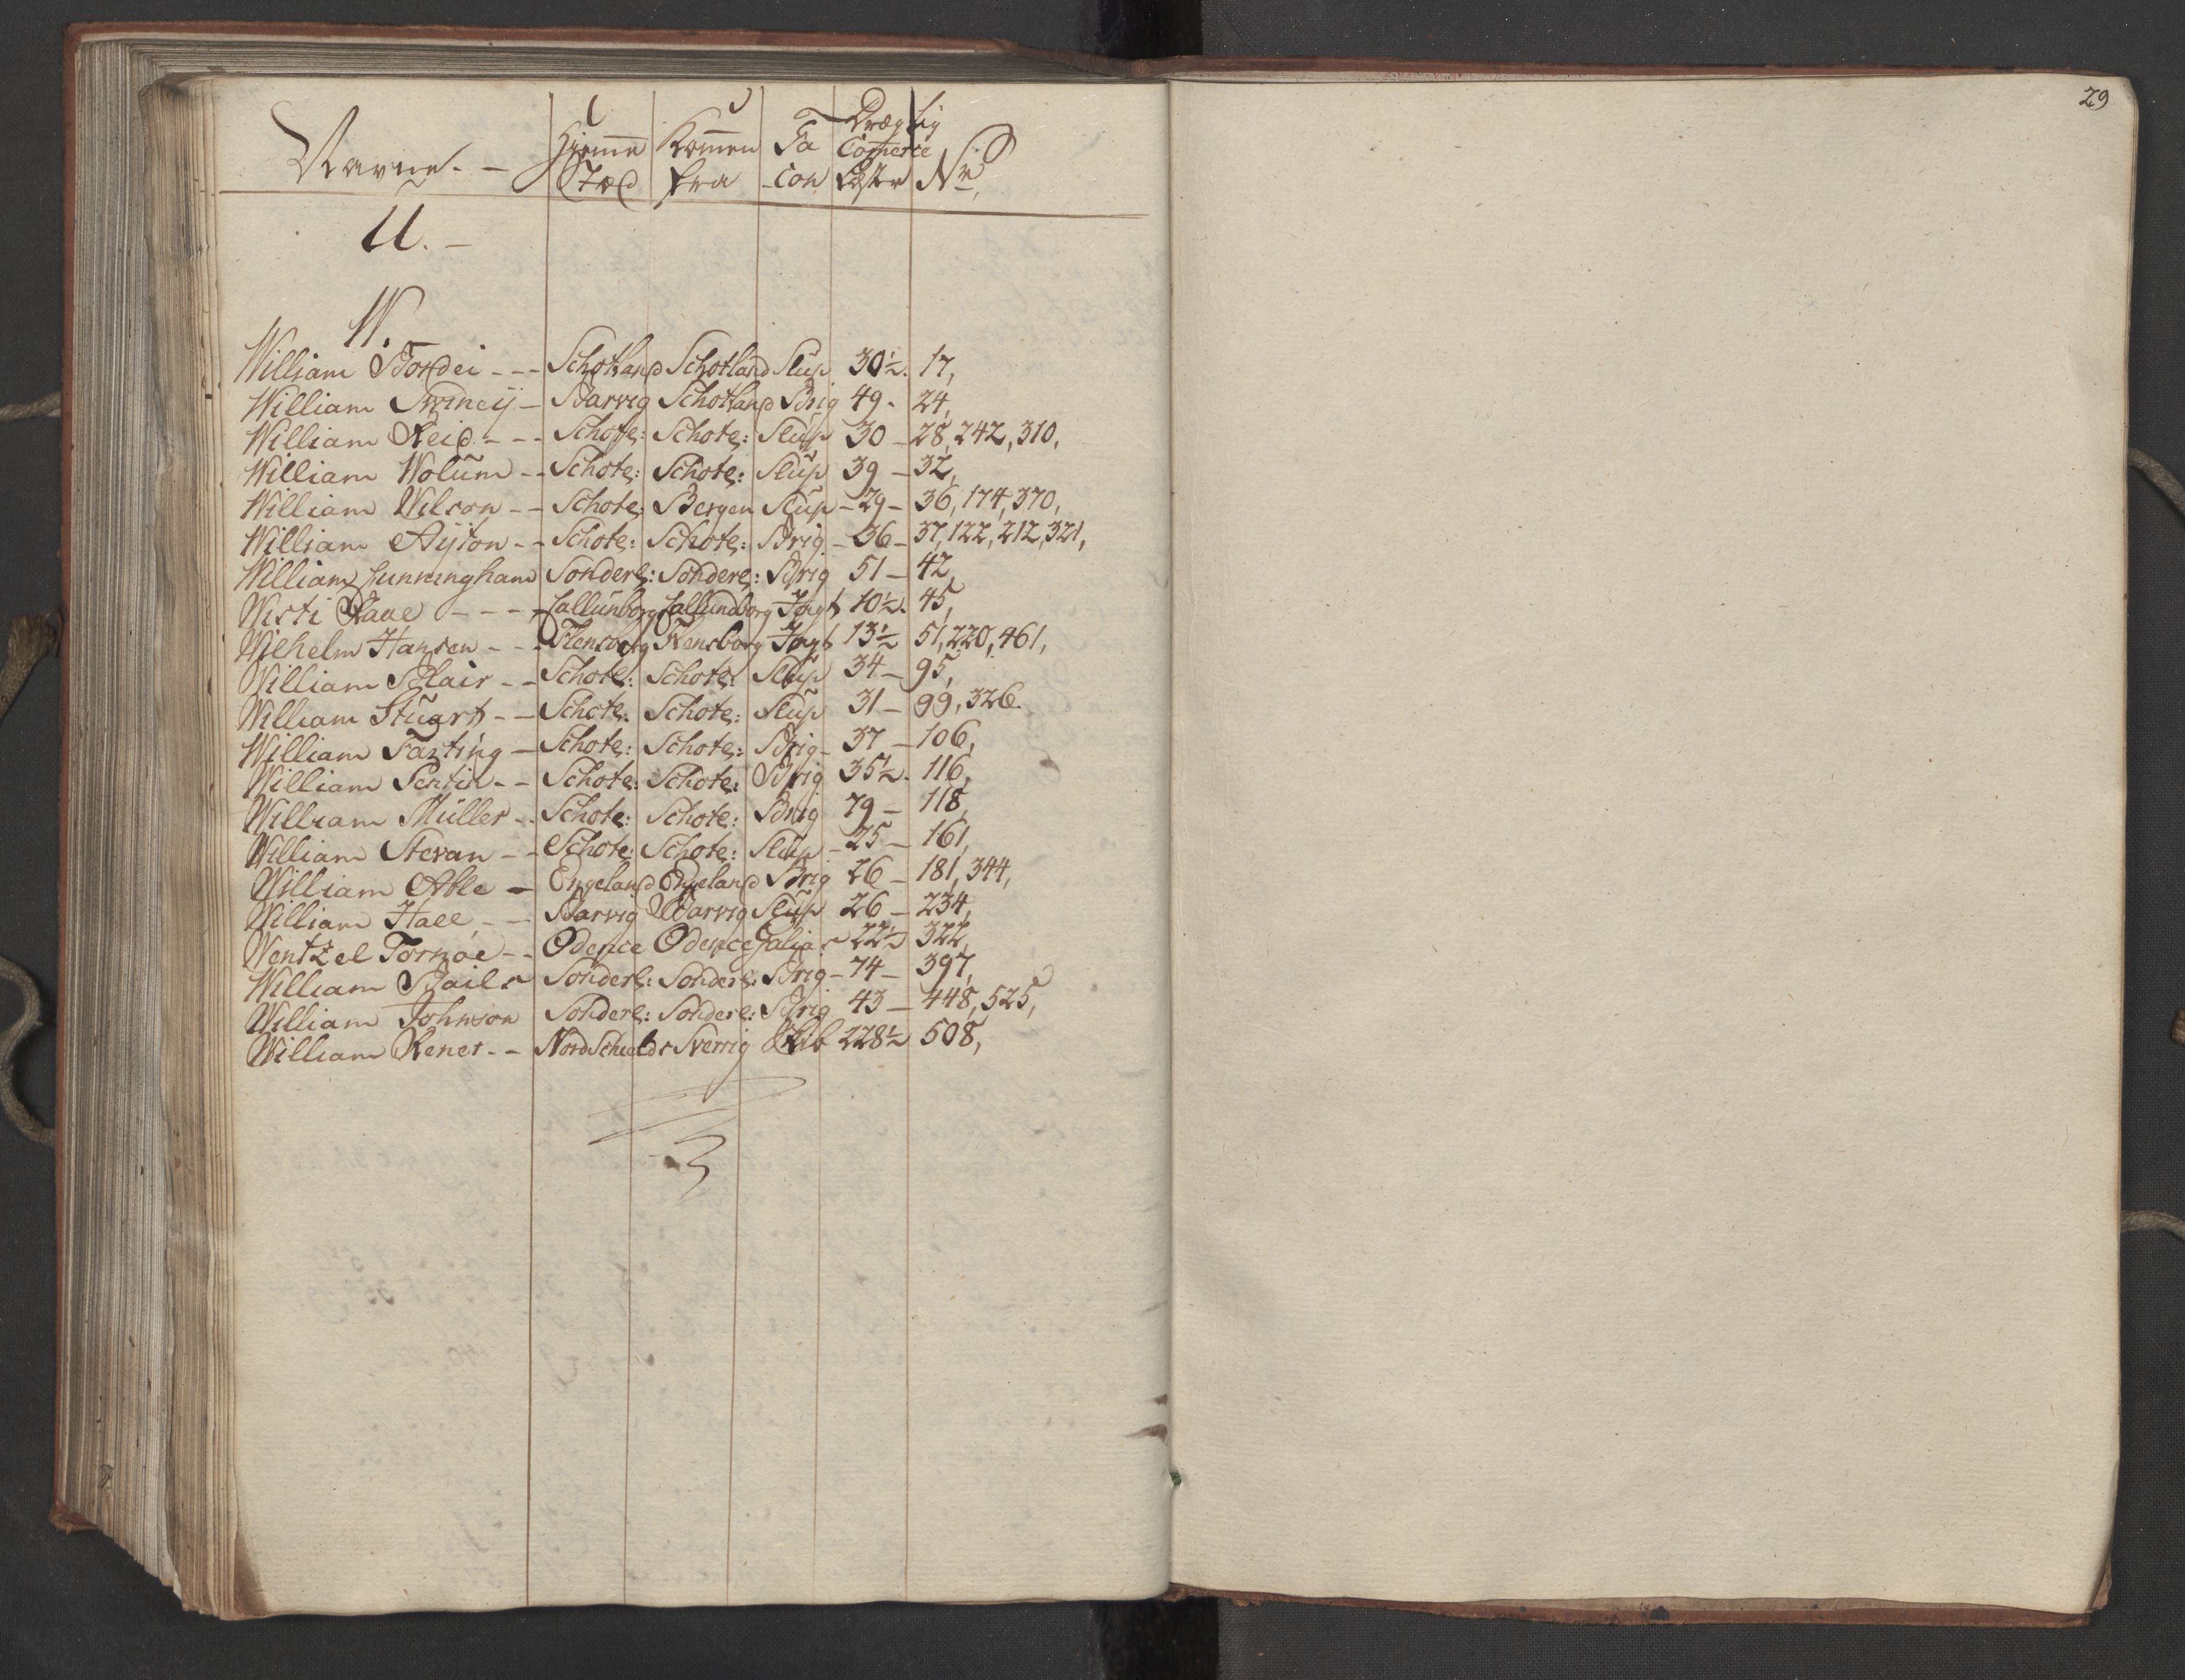 29
Navne. - Hjemme Stæd Komen fra Facon Drægtig Comerce Læster No,
U. -
W.
William Bondei - - - Schotland Schotland Slup 30½. 17,
William Swineÿ - Barvig Schotland Brig 49. 24,
William Reid - - - Schotl: Schotl: Slup 30 - 28, 242, 310,
William Wolum - - Schotl: Schotl: Slup 39 - 32,
William Wilson - - Schotl: Bergen Slup - 29 - 36, 174, 370,
William Aÿton - - Schotl: Schotl: Brig - 36 - 37, 122, 212, 321,
William Cunningham Sonderl: Sonderl: Brig 51 - 42,
Wisti Aaae - - - - Callunborg Callundborg Jagt 10½. 45,
Wilhelm Hansen - - - Flensborg Flensborg Jagt 13½ 51, 220, 461,
William Blair - - Schotl: Schotl: Slup 34 - 95,
William Stuart - - Schotl: Schotl: Slup 31 - 99, 326.
William Farting - Schotl: Schotl: Brig - 37 - 106,
William Sentin - - Schotl: Schotl: Brig 35½. 116,
William Müller - - Schotl: Schotl: Brig 79 - 118,
William Stevan - - Schotl: Schotl: Slup - 25 - 161,
William Able - Engeland Engeland Brig 26 - 181, 344,
William Hall - - Barvig Barvig Slup 26 - 234,
Wentzel Tornøe - - Odence Odence Galias 22½ 322,
William Bails Sonderl: Sonderl: Brig - 74 - 397,
William Johnson Sonderl: Sonderl: Brig 43 - 448, 525,
William Rener - - Nord Schields Sverrig Skib 228½ 508,